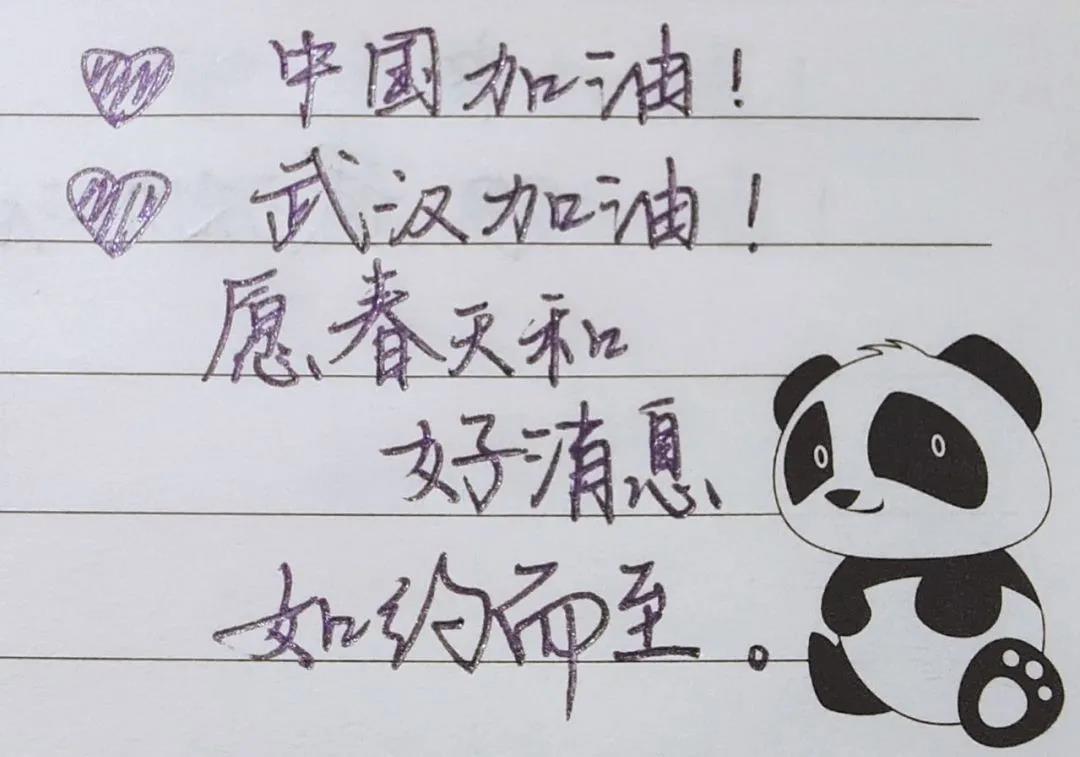 中国加油！
武汉加油！
愿春天和
好消息
如约而至。